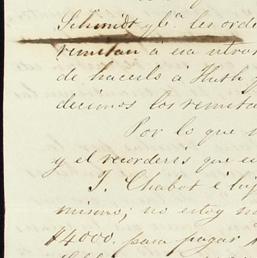 Schmidt y Cª. les orde
remitan a esa otra
de hacerlo á Huth y
decimos los remita
Por lo que
y el recorderis que
J. Chabot é hij
mismo; no estoy
$4000. para pagar